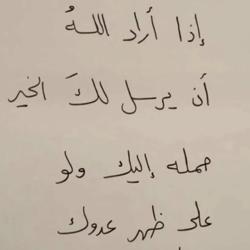 إذا أراد اللهُ
أن يرسل لكَ الخير
حمله إليك ولو
على ظهر عدوك